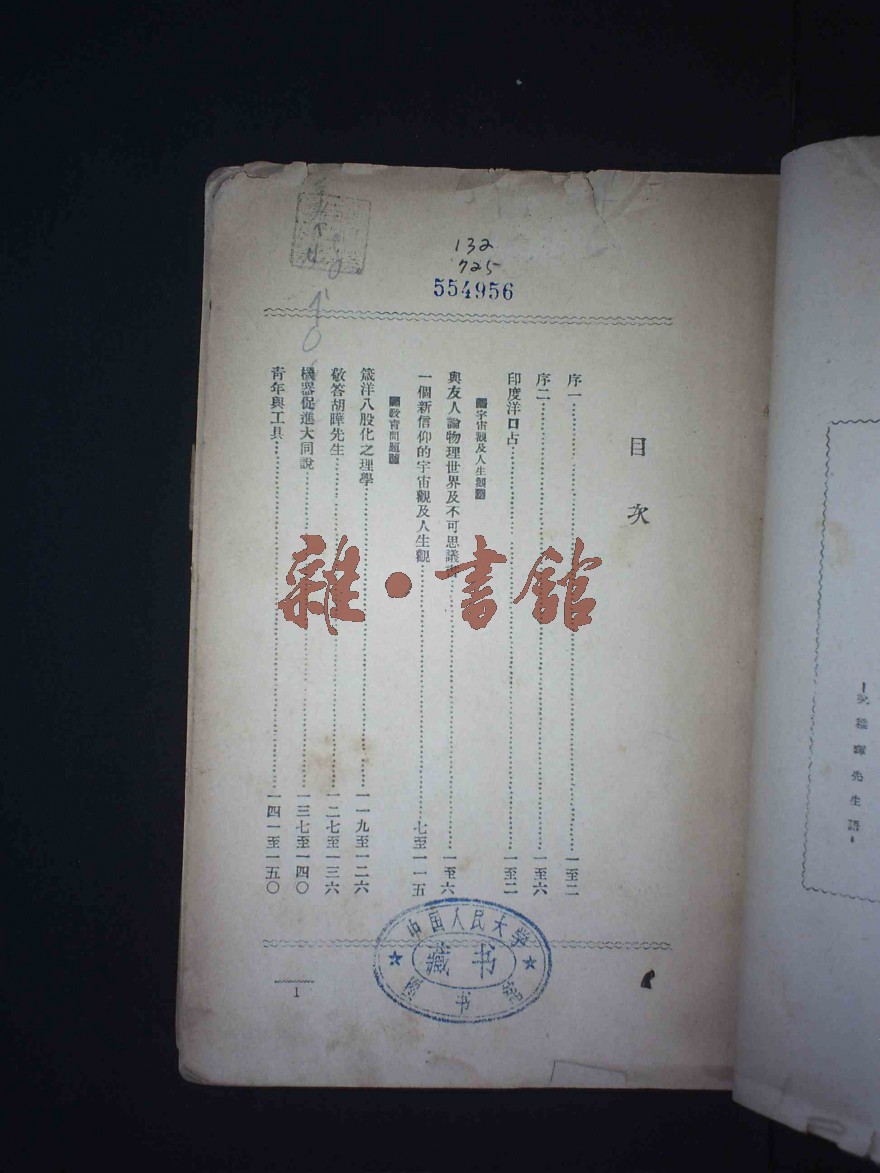 132
725
554956
目次
序一 一至二
序二 一至六
印度洋口占 一至二
宇宙觀及人生觀
與友人論物理世界及不可思議書 一至六
一個新信仰的宇宙觀及人生觀 七至一一五
教育問題
箴洋八股化之理學 一一九至一二六
敬答胡曄先生 一二七至一三六
機器促進大同說 一三七至一四〇
青年與工具 一四一至一五〇
1
雜·書館
中国人民大学
藏书
图书馆
稚暉先生語